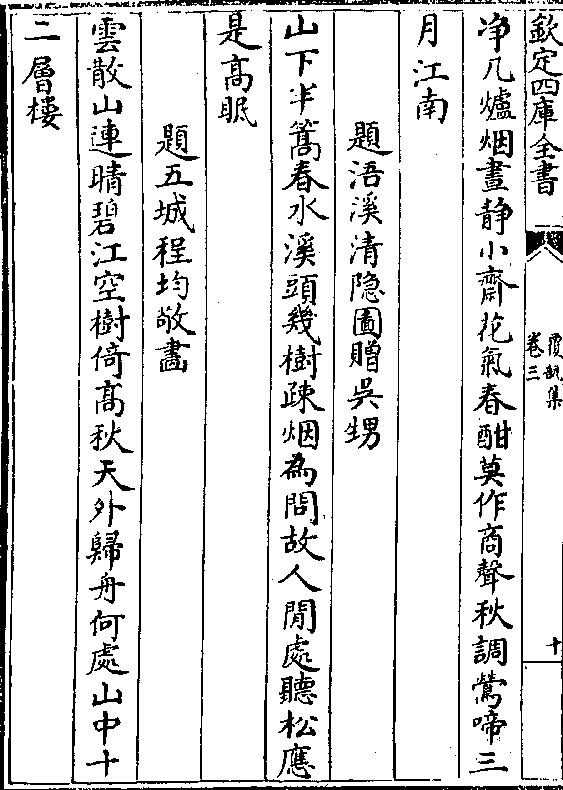 欽定四庫全書
覆瓿集
卷三
十
净几爐烟晝静小齋花氣春酣莫作商聲秋調鶯啼三
月江南
題浯溪清隐圖贈吳甥
山下半篙春水溪頭幾樹疎烟為問故人閒處聽松應
是髙眠
題五城程均敬畫
雲散山連晴碧江空樹倚髙秋天外歸舟何處山中十
二層樓